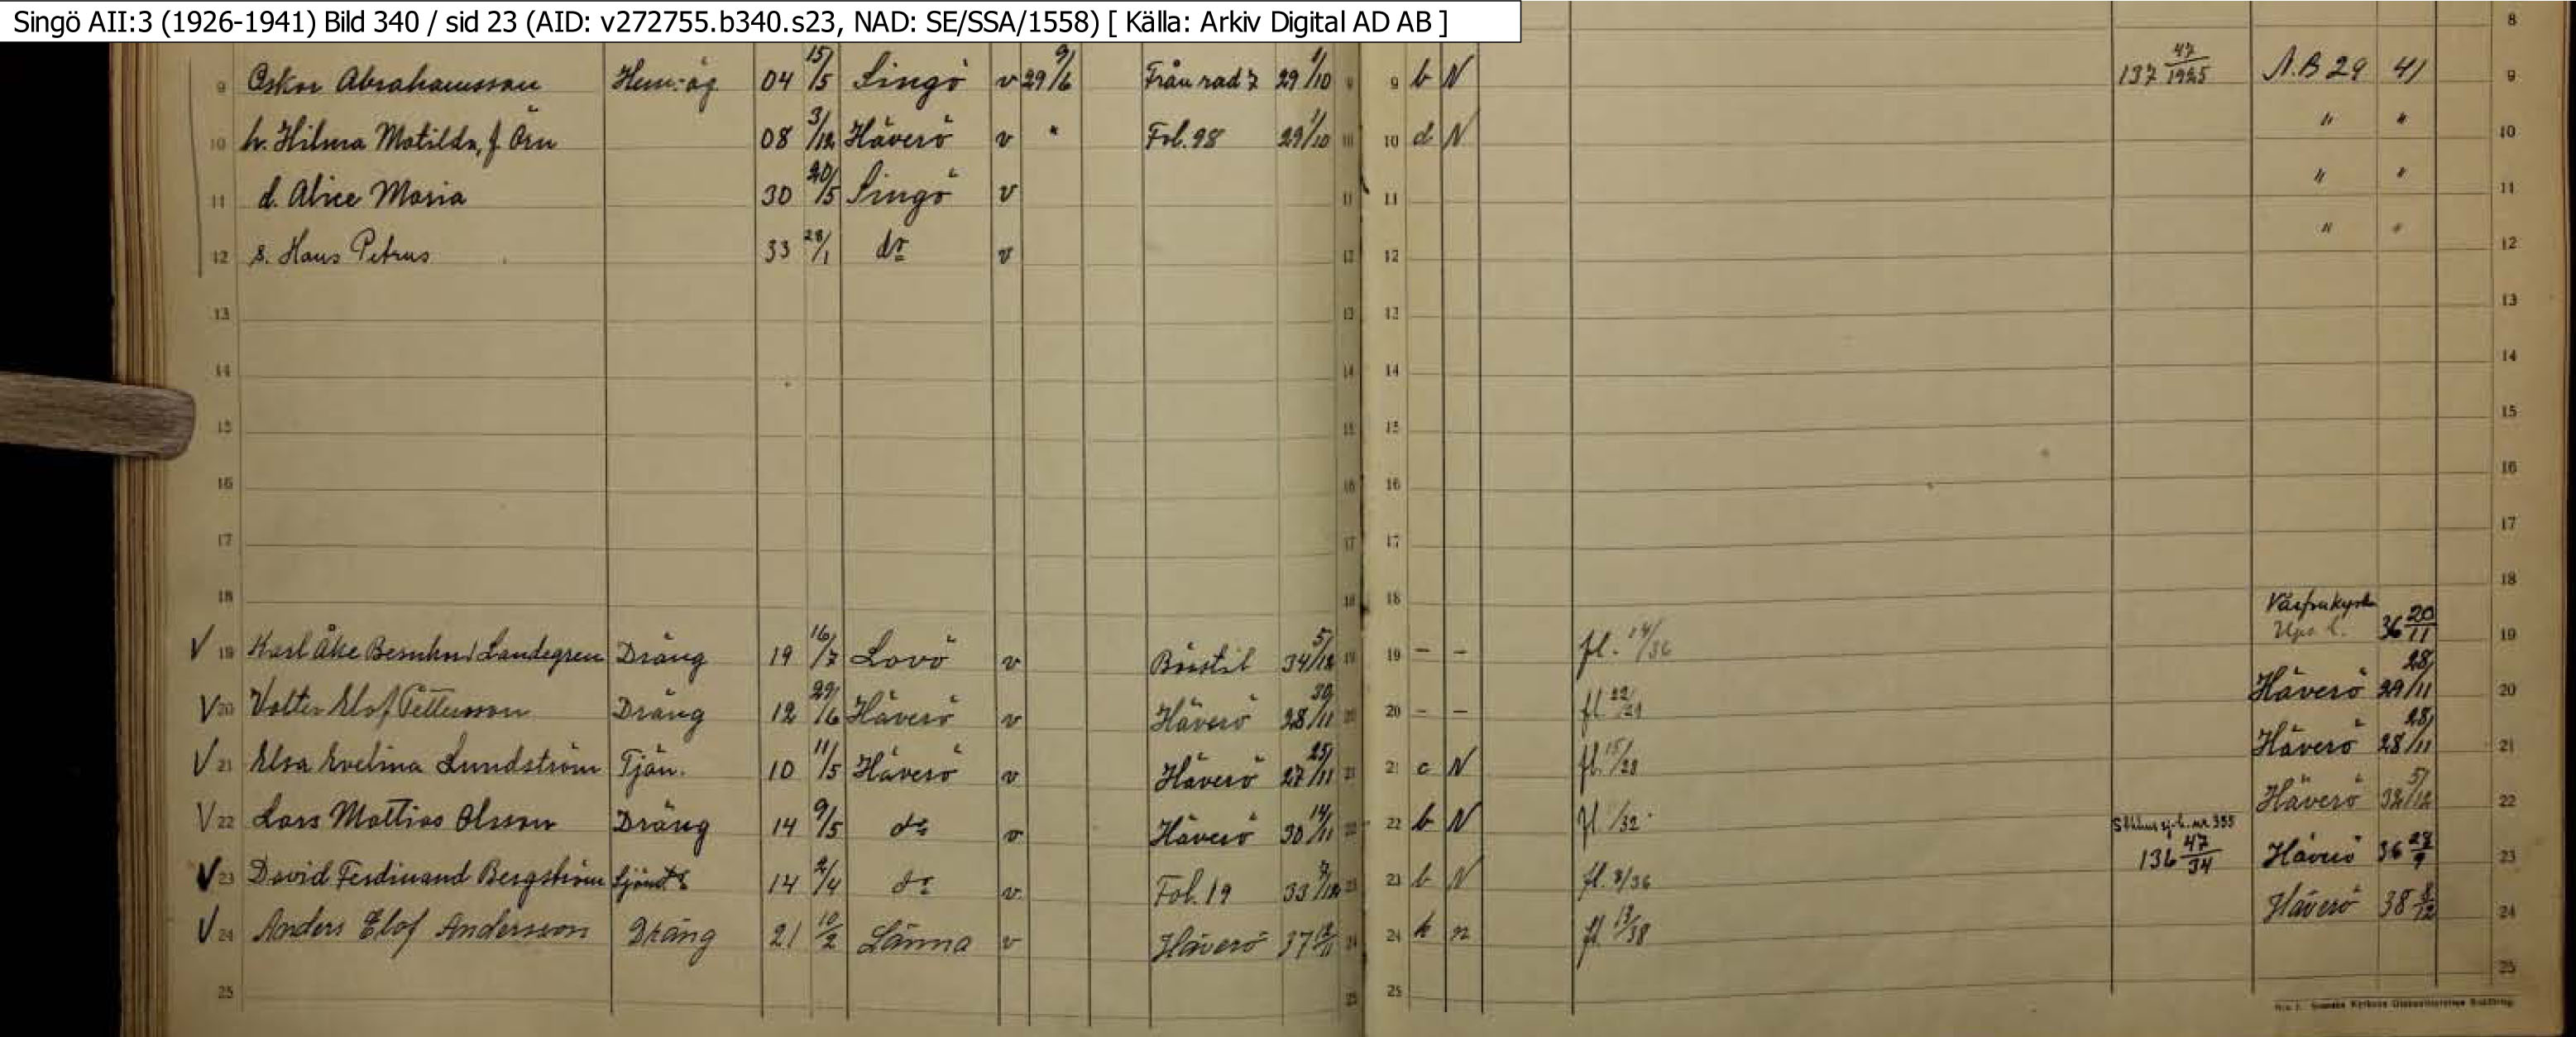 Singö AII:3 (1926-1941) Bild 340 / sid 23 (AID: v272755.b340.s23, NAD: SE/SSA/1558) [ Källa: Arkiv Digital AD AB ]
8
9 Oskar Abrahamsson Hem.-äg. 04 15/5 Singö v 29 9/6 Från rad 7 29 1/10 9 9 b N 137 47/1925 N.B 29 41 9
10 h. Hilma Matilda, f. Örn 08 3/12 Häverö v " Fol. 98 29 1/10 10 10 d N " " 10
11 d. Alice Maria 30 20/5 Singö v 11 11 " " 11
12 s. Hans Petrus 33 28/1 do v 12 12 " " 12
13 13 13 13
14 14 14 14
15 15 15 15
16 16 16 16
17 17 17 17
18 18 18 18
V 19 Karl Åke Bernhard Landegren Dräng 19 16/7 Lovö v Börstil 34 5/12 19 19 - - fl. 14/36 Vårfrukyrka Ups. l. 36 20/11 19
V 20 Valter Elof Pettersson Dräng 12 29/6 Häverö v Häverö 28 30/11 20 20 - - fl 22/29 Häverö 29 28/11 20
V 21 Elsa Evelina Lundström Tjän. 10 11/5 Häverö v Häverö 27 25/11 21 21 c N fl. 15/28 Häverö 28 28/11 21
V 22 Lars Mattias Olsson Dräng 14 9/5 do v Häverö 30 14/11 22 22 b N fl /32 Häverö 32 5/12 22
V 23 David Ferdinand Bergström 14 2/4 do v. Fol. 19 33 7/12 23 23 b N fl. 8/36 Sthlms sj.-h. nr 355 136 47/34 Häverö 36 28/9 23
V 24 Anders Elof Andersson Dräng 21 10/2 Länna v Häverö 37 12/11 24 24 h n fl. 13/38 Häverö 38 8/12 24
25 25 25 25